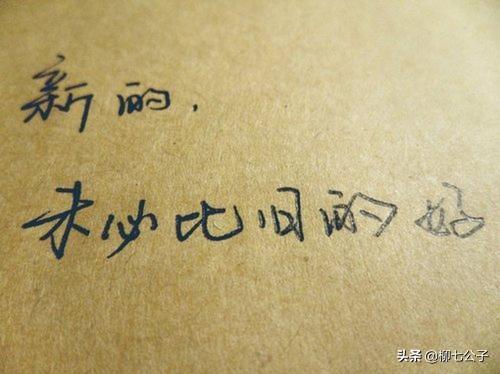 新的，
未必比旧的好
头条 @柳七公子